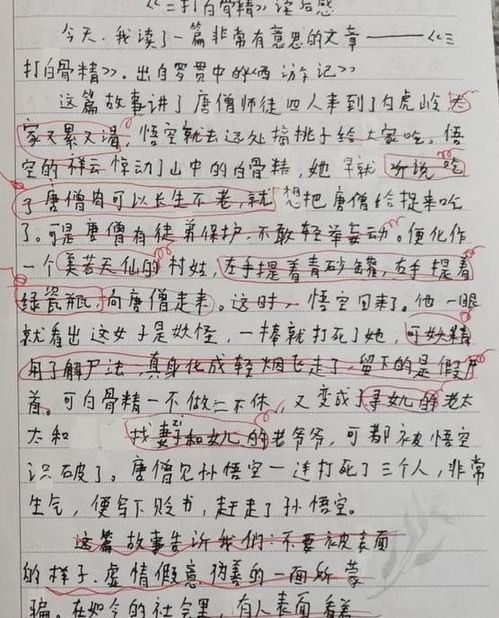 《三打白骨精》读后感
今天,我读了一篇非常有意思的文章——《三
打白骨精》.出自罗贯中的《西游记》
这篇故事讲了唐僧师徒四人来到了白虎岭,大
家又累又渴,悟空就去远处摘桃子给大家吃,悟
空的祥云惊动了山中的白骨精,她早就听说吃
了唐僧肉可以长生不老,就想把唐僧给捉来吃
了。可是唐僧有徒弟保护,不敢轻举妄动。便化作
一个美若天仙的村姑,左手提着青砂罐,右手提着
绿瓷瓶,向唐僧走来。这时,悟空回来了。他一眼
就看出这女子是妖怪,一棒就打死了她,可妖精
用了解尸法,真身化成轻烟飞走了,留下的是假尸
首。可白骨精一不做二不休,又变成了寻女儿的老太
太和 找妻子和女儿的老爷爷,可都被悟空
识破了。唐僧见孙悟空一连打死了三个人,非常
生气,便写下贬书,赶走了孙悟空。
这篇故事告诉我们:不要被表面
的样子.虚情假意,伪善的一面所蒙
骗。在如今的社会里,有人表面看着